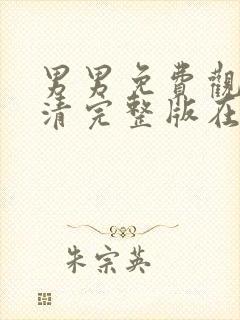 男男免費觀
清完整版在
朱宗英